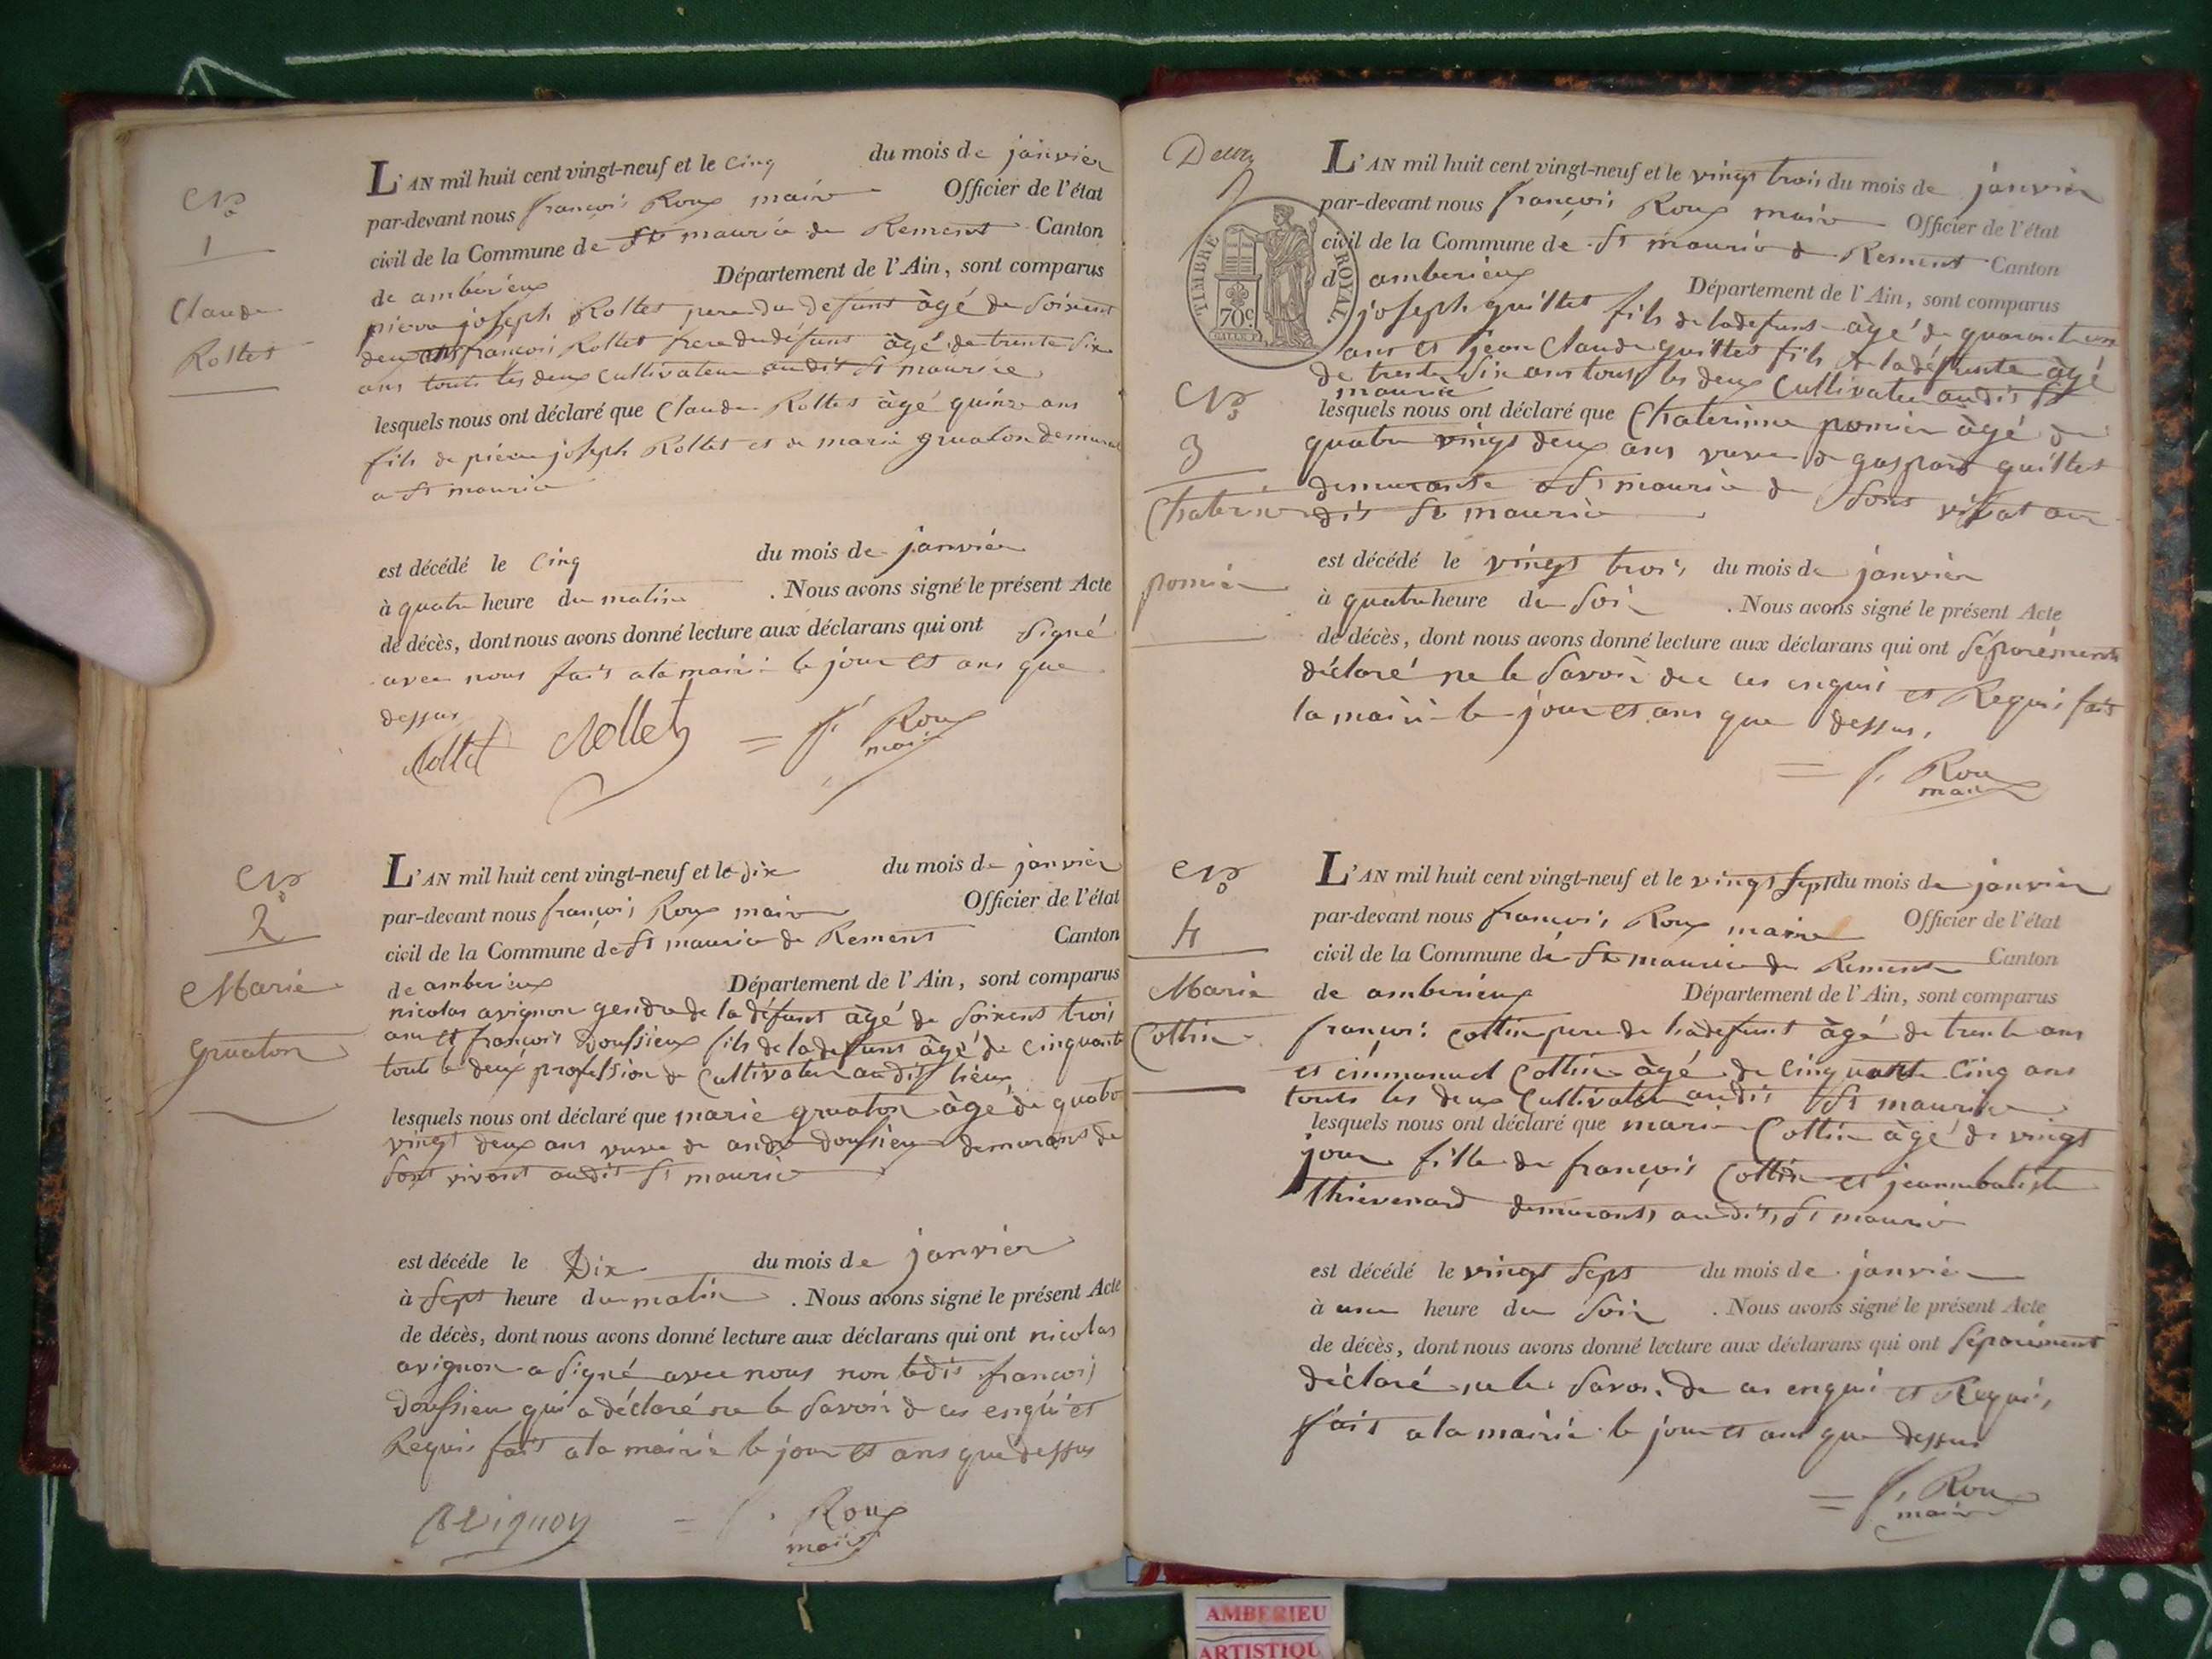 N°
1
Claude
Rollet
L'AN mil huit cent vingt-neuf et le cinq du mois de janvier
par-devant nous françois Roux maire Officier de l'état
civil de la Commune de St maurice de Remens Canton
de ambérieux Département de l'Ain, sont comparus
pierre joseph Rollet pere du defunt âgé de soixent
deux ans françois Rollet frere dudéfunt âgé de trente six
ans touts les deux cultivateur audit St maurice
lesquels nous ont déclaré que Claude Rollet âgé quinze ans
fils de pierre joseph Rollet et de marie gruaton demurat
a St maurice
est décédé le Cinq du mois de janvier
à quatre heure du matin . Nous avons signé le présent Acte
de décès, dont nous avons donné lecture aux déclarans qui ont signé
avec nous fait a la mairie le jour et ans que
dessus
Rollet Rollet = f. Roux
maire
N°
2
Marie
gruaton
L'AN mil huit cent vingt-neuf et le dix du mois de janvier
par-devant nous françois Roux maire Officier de l'état
civil de la Commune de St maurice de Remens Canton
de amberieux Département de l'Ain, sont comparus
nicolas avignon gendre de la défunt âgé de soixent trois
ans et françois Doussieux fils de la defunt âgé de cinquante
touts le deux profession de Cultivateur audit lieux
lesquels nous ont déclaré que marie gruaton âgé de quatre
vingt deux ans veuve de andre doussieu demurant de
sont vivant audit St maurice
est décéde le Dix du mois de janvier
à sept heure du matin . Nous avons signé le présent Acte
de décès, dont nous avons donné lecture aux déclarans qui ont nicolas
avignon a signé avec nous non ledit françois
doussieu qui a déclaré ne le savoir de ces enqui et
Requis fait a la mairie le jour et ans que dessus
avignon = f. Roux
maire
Deux
TIMBRE ROYAL.
70c
N°
3
Chaterine
pomier
L'AN mil huit cent vingt-neuf et le vingt trois du mois de janvier
par-devant nous françois Roux maire Officier de l'état
civil de la Commune de St maurice de Remens Canton
d amberieux Département de l'Ain, sont comparus
joseph quittet fils de ladefunt âgé de quarante
ans et jean Claude quittet fils de la défunte âgé
de trente six ans tous les deux Cultivateur audit St
maurice
lesquels nous ont déclaré que Chaterinne pomier âgé de
quatre vingt deux ans veuve de gaspard quittet
demurante a St maurice de sont vivat au
dit St maurice
est décédé le vingt trois du mois de janvier
à quatre heure du soir . Nous avons signé le présent Acte
de décès, dont nous avons donné lecture aux déclarans qui ont séparément
déclaré ne le savoir de ces enquis et Requi fait
la mairie le jour et ans que dessus.
= f. Roux
maire
N°
4
Marie
Collin
L'AN mil huit cent vingt-neuf et le vingt sept du mois de janvier
par-devant nous françois Roux maire Officier de l'état
civil de la Commune de St maurice de Remens Canton
de amberieux Département de l'Ain, sont comparus
françois Collin pere de ladefunt âgé de trente ans
et émmanuel Collin âgé de cinquante Cinq ans
touts les deux Cultivateur audit St maurice
lesquels nous ont déclaré que marie Collin âgé de vingt
jour fille de françois Collin et jeannebatiste
thievenard demurants audit St maurice
est décédé le vingt sept du mois de janvier
à une heure du soir . Nous avons signé le présent Acte
de décès, dont nous avons donné lecture aux déclarans qui ont séparément
déclaré ne le savoir de ces enqui et Requi,
fait a la mairie le jour et ans que dessus
= f. Roux
maire
AMBERIEU
ARTISTIQU